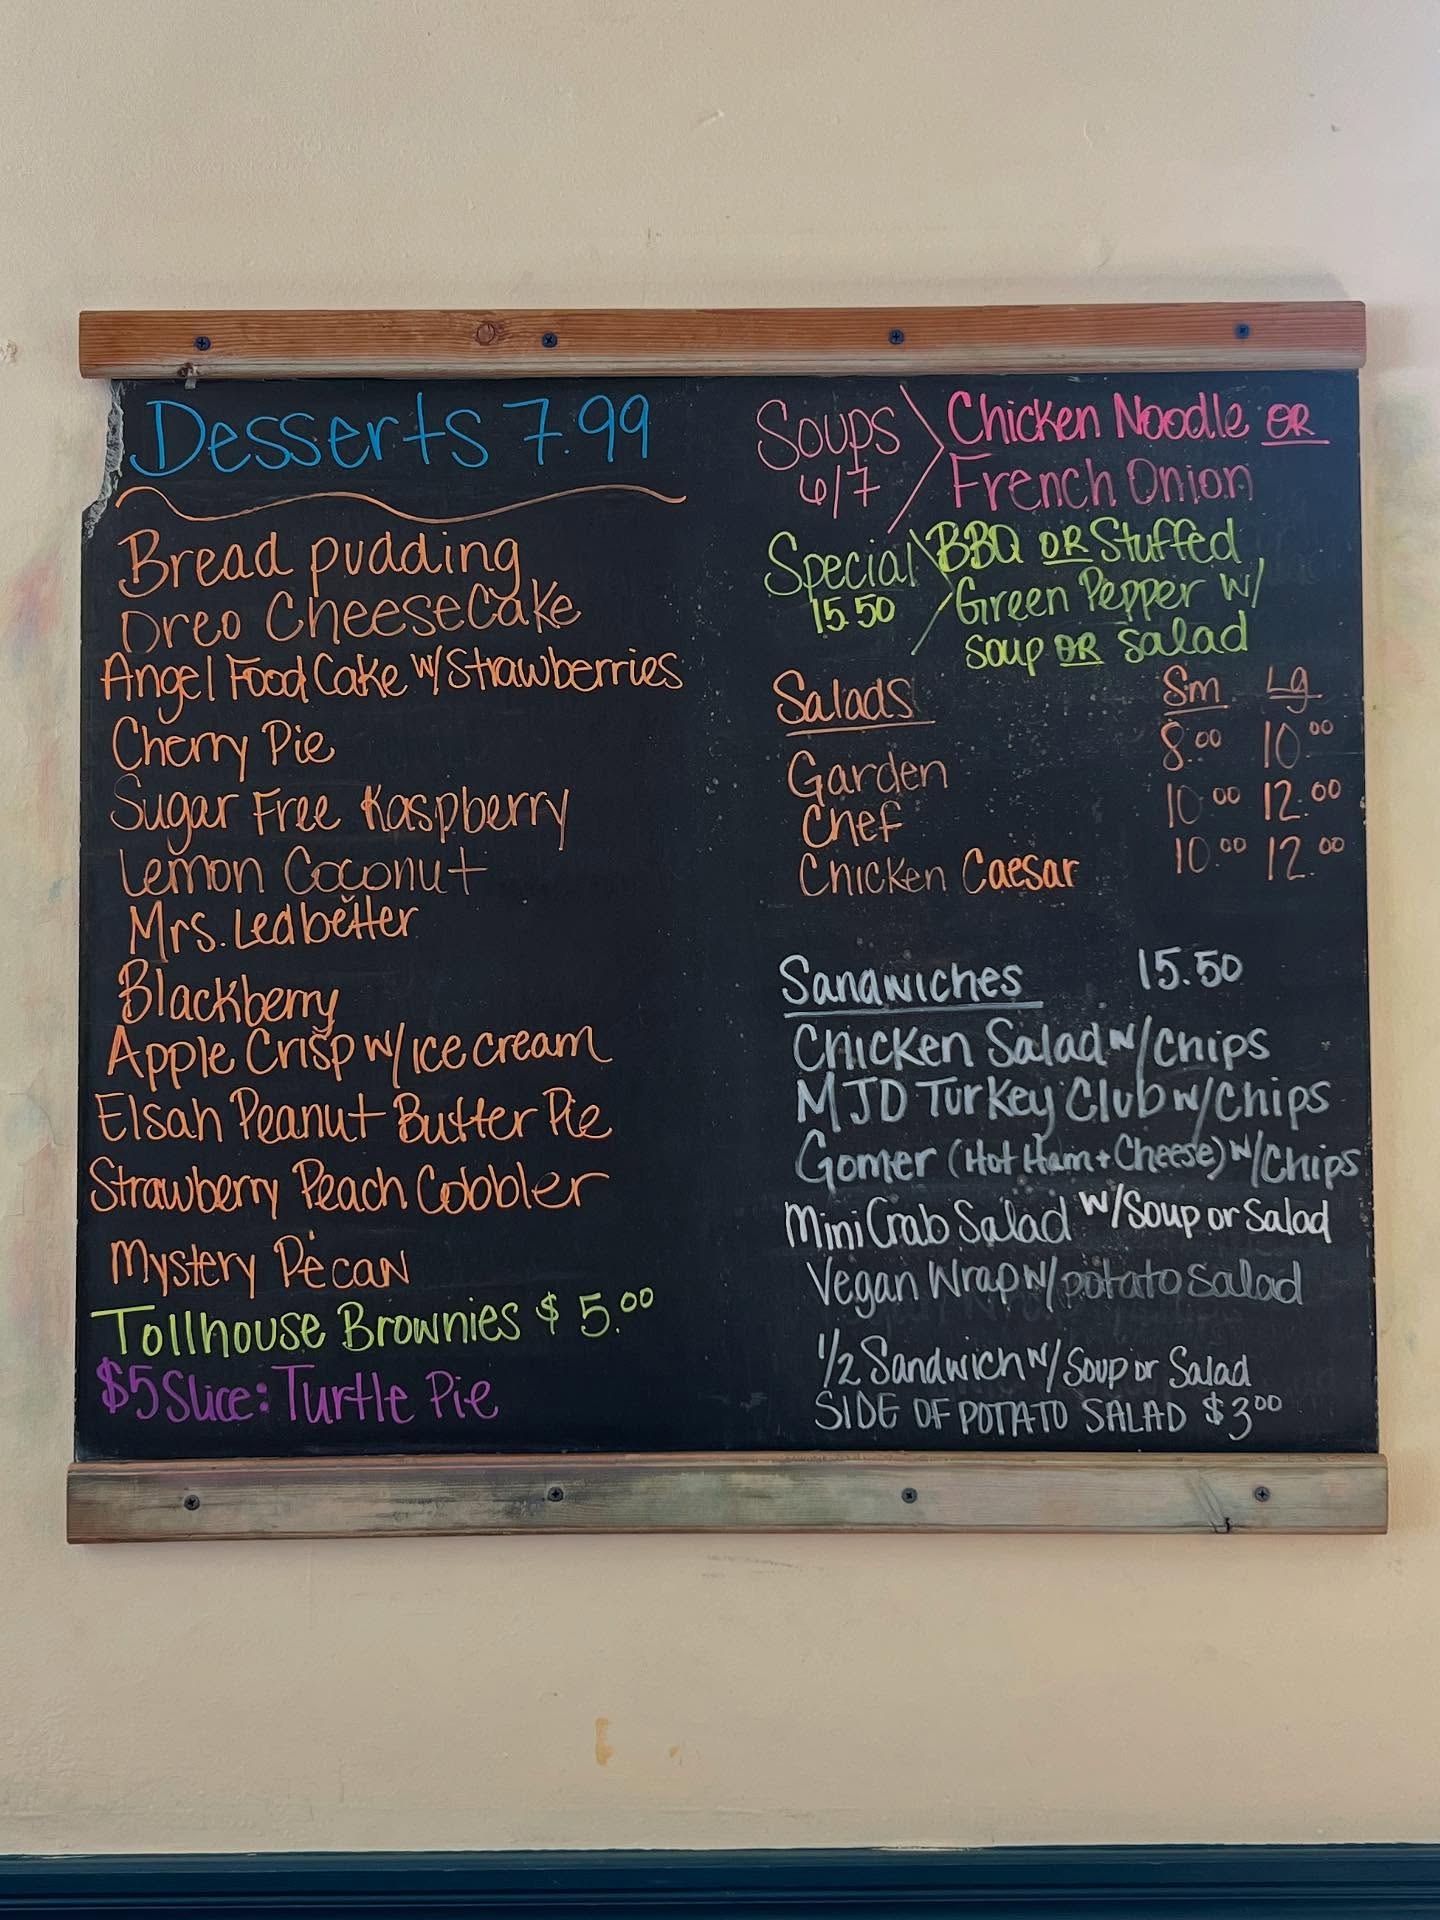 Desserts 7.99
Bread pudding
Oreo Cheesecake
Angel Food Cake w/Strawberries
Cherry Pie
Sugar Free Raspberry
Lemon Coconut
Mrs. Ledbetter
Blackberry
Apple Crisp w/ ice cream
Elsah Peanut Butter Pie
Strawberry Peach Cobbler
Mystery Pecan
Tollhouse Brownies $5.00
$5 Slice: Turtle Pie
Soups
6/7
Chicken Noodle OR
French Onion
Special
15.50
BBQ OR Stuffed
Green Pepper w/
Soup OR Salad
Salads Sm Lg
Garden 8.00 10.00
Chef 10.00 12.00
Chicken Caesar 10.00 12.00
Sandwiches 15.50
Chicken Salad w/chips
MJD Turkey Club w/chips
Gomer (Hot Ham + Cheese) w/Chips
Mini Crab Salad w/Soup or Salad
Vegan Wrap w/potato salad
1/2 Sandwich w/ Soup or Salad
SIDE OF POTATO SALAD $3.00